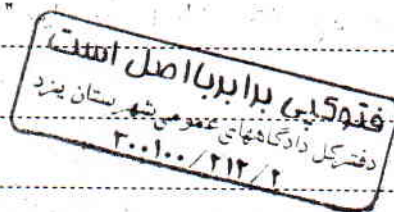 فتوکپی برابر با اصل است
دفتر کل دادگاههای عمومی شهرستان یزد
۳۰۰۱۰۰/۲۱۲/۲